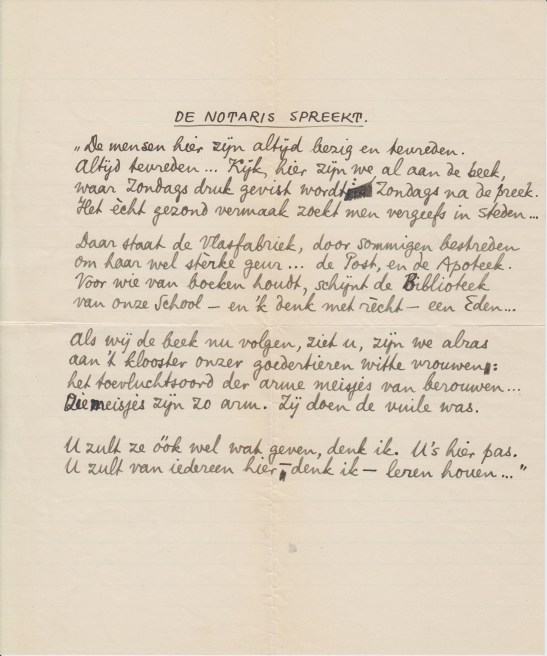 DE NOTARIS SPREEKT.
„De mensen hier zijn altijd bezig en tevreden.
Altijd tevreden... Kijk, hier zijn we al aan de beek,
waar Zondags druk gevist wordt, Zondags na de preek.
Het ècht gezond vermaak zoekt men vergeefs in steden...
Daar staat de Vlasfabriek, door sommigen bestreden
om haar wel sterke geur... de Post, en de Apoteek.
Voor wie van boeken houdt, schijnt de Biblioteek
van onze School – en 'k denk met rècht – een Eden...
Als wij de beek nu volgen, ziet u, zijn we alras
aan 't klooster onzer goedertieren witte vrouwen:
het toevluchtsoord der arme meisjes van berouwen...
Die meisjes zijn zo arm. Zij doen de vuile was.
U zult ze óók wel wat geven, denk ik. U's hier pas.
U zult van iedereen hier – denk ik – leren houen..."